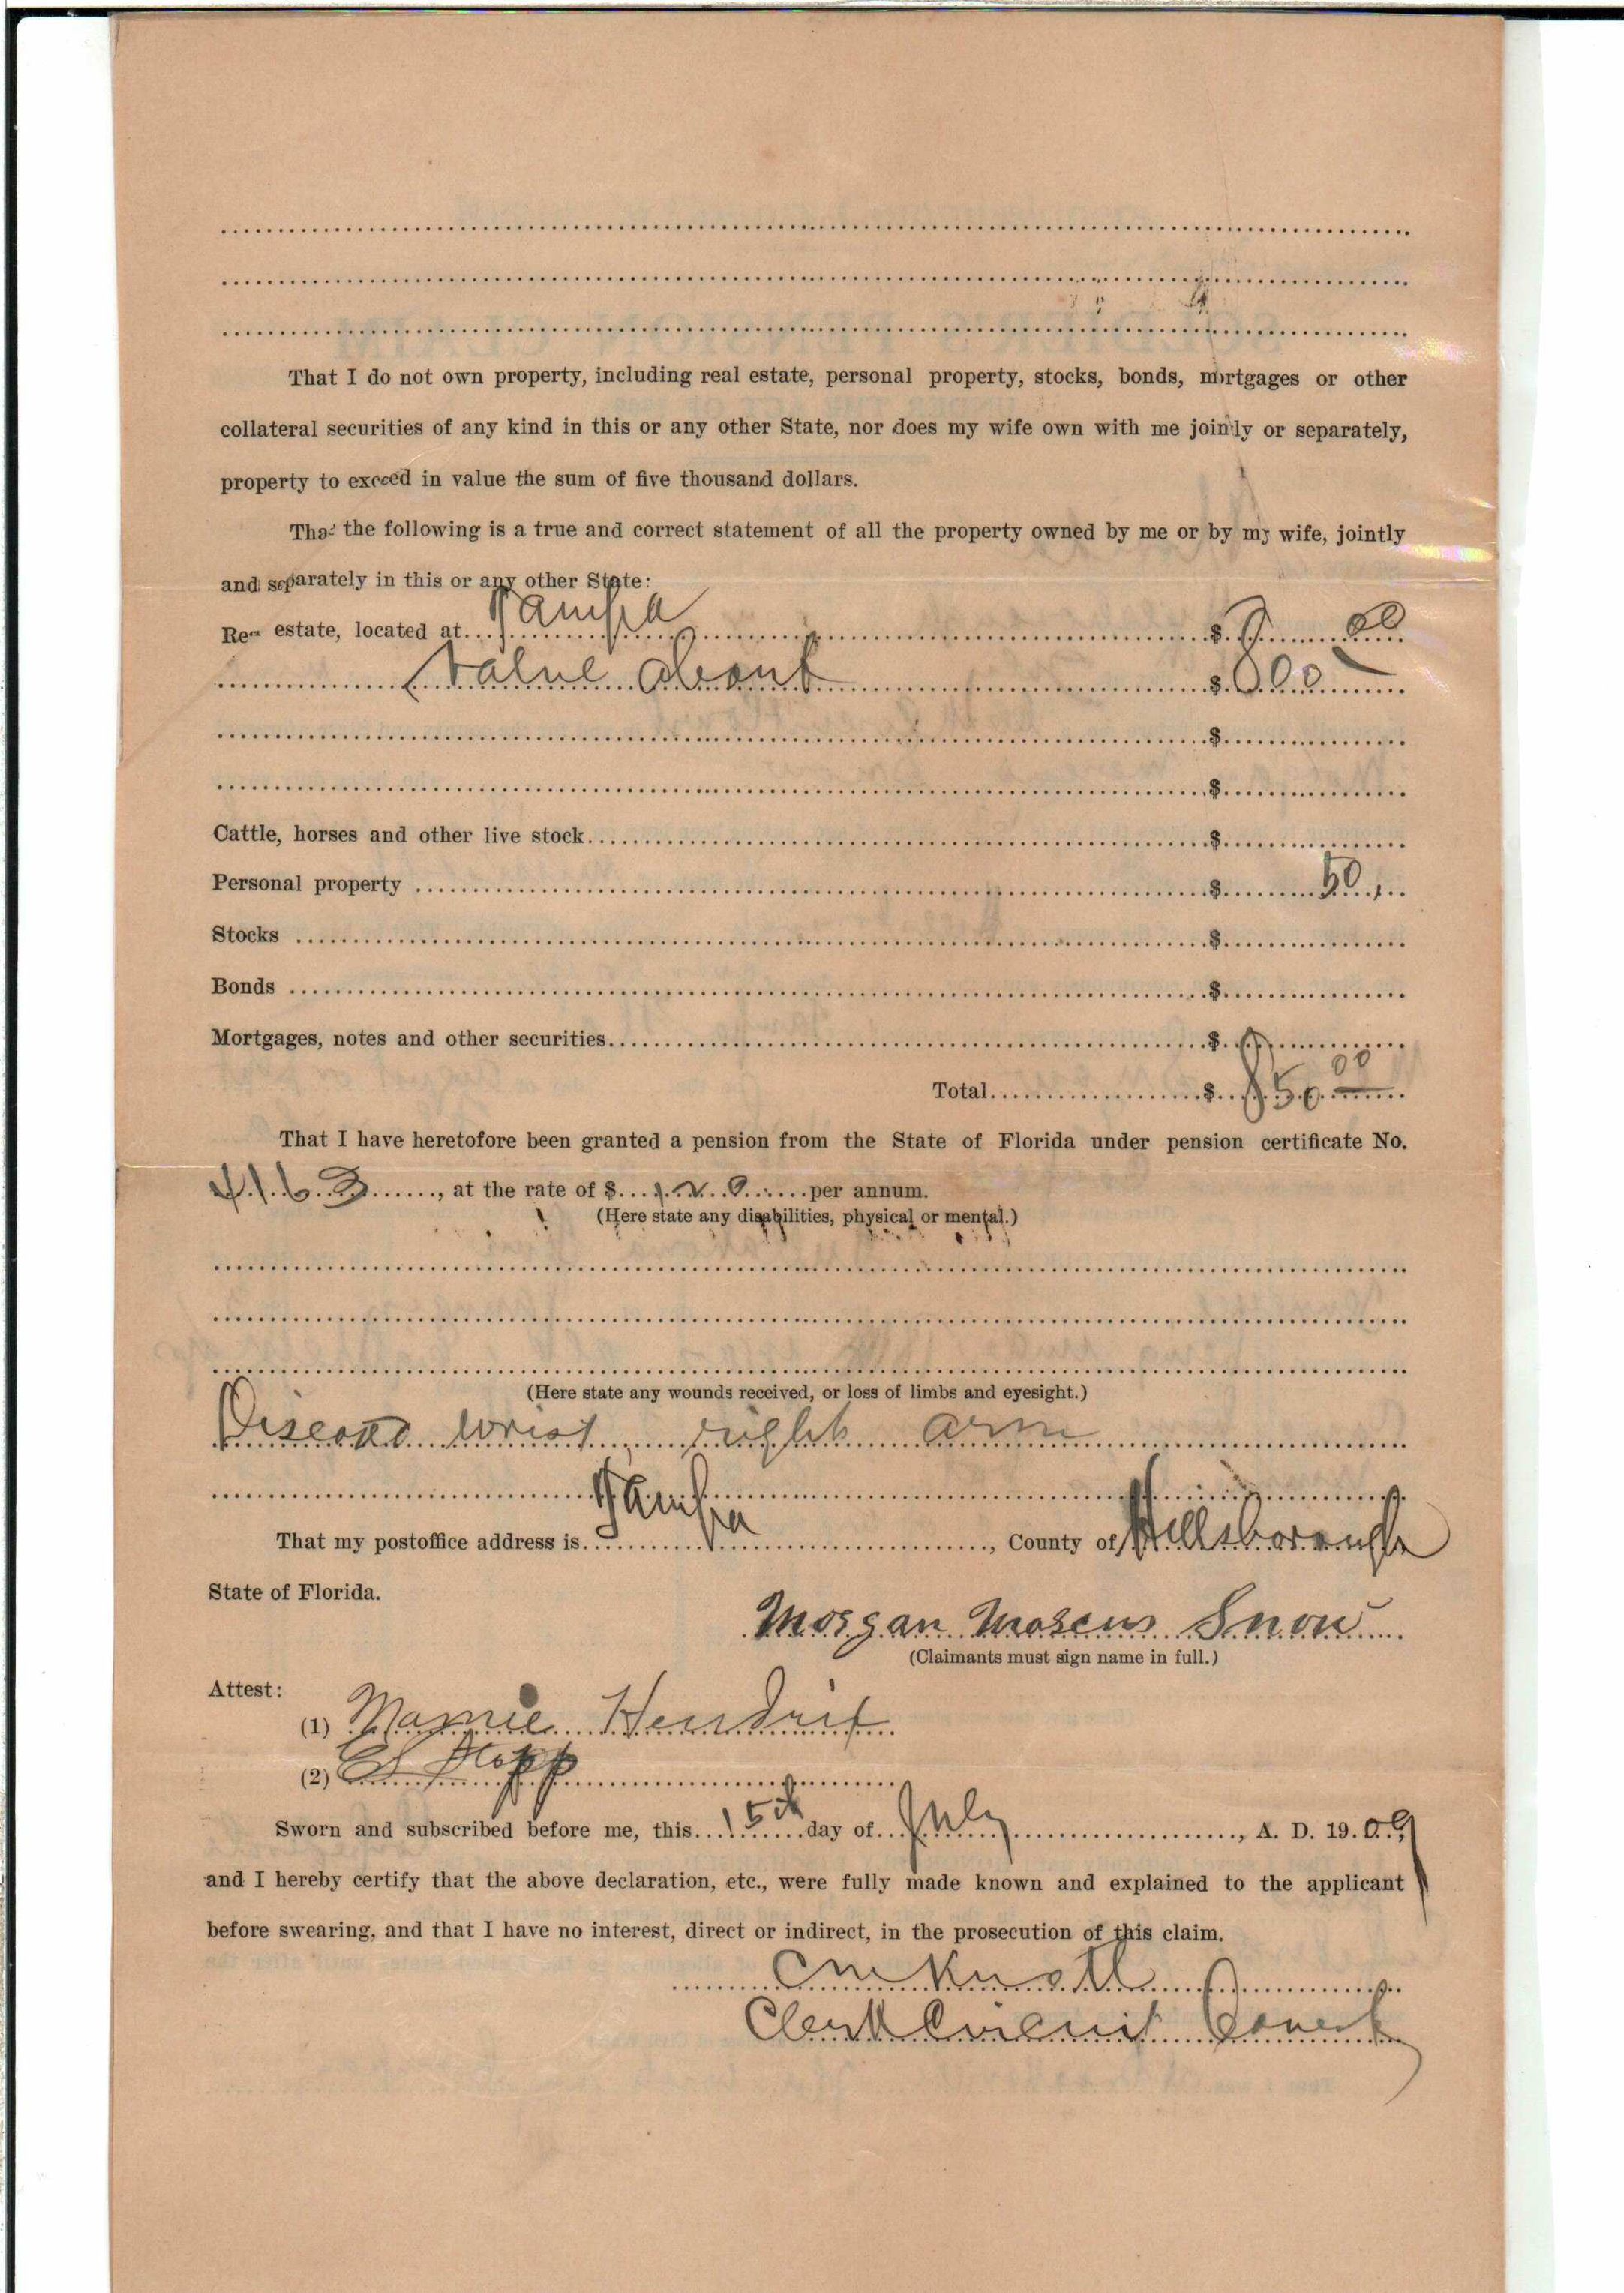 That I do not own property, including real estate, personal property, stocks, bonds, mortgages or other
collateral securities of any kind in this or any other State, nor does my wife own with me joinly or separately,
property to exceed in value the sum of five thousand dollars.
That the following is a true and correct statement of all the property owned by me or by my wife, jointly
and separately in this or any other State:
Re estate, located at Tampa $
Value about $ 800 00
$
$
Cattle, horses and other live stock $
Personal property $ 50
Stocks $
Bonds $
Mortgages, notes and other securities $
Total $ 850 00
That I have heretofore been granted a pension from the State of Florida under pension certificate No.
4163, at the rate of $ 120 per annum.
(Here state any disabilities, physical or mental.)
(Here state any wounds received, or loss of limbs and eyesight.)
wrist right arm
That my postoffice address is Tampa, County of Hillsborough
State of Florida.
Morgan Snow
(Claimants must sign name in full.)
Attest:
(1) Mamie Hendrix
(2)
Sworn and subscribed before me, this 15th day of July, A. D. 1909,
and I hereby certify that the above declaration, etc., were fully made known and explained to the applicant
before swearing, and that I have no interest, direct or indirect, in the prosecution of this claim.
C M Knott
Clerk Circuit Court